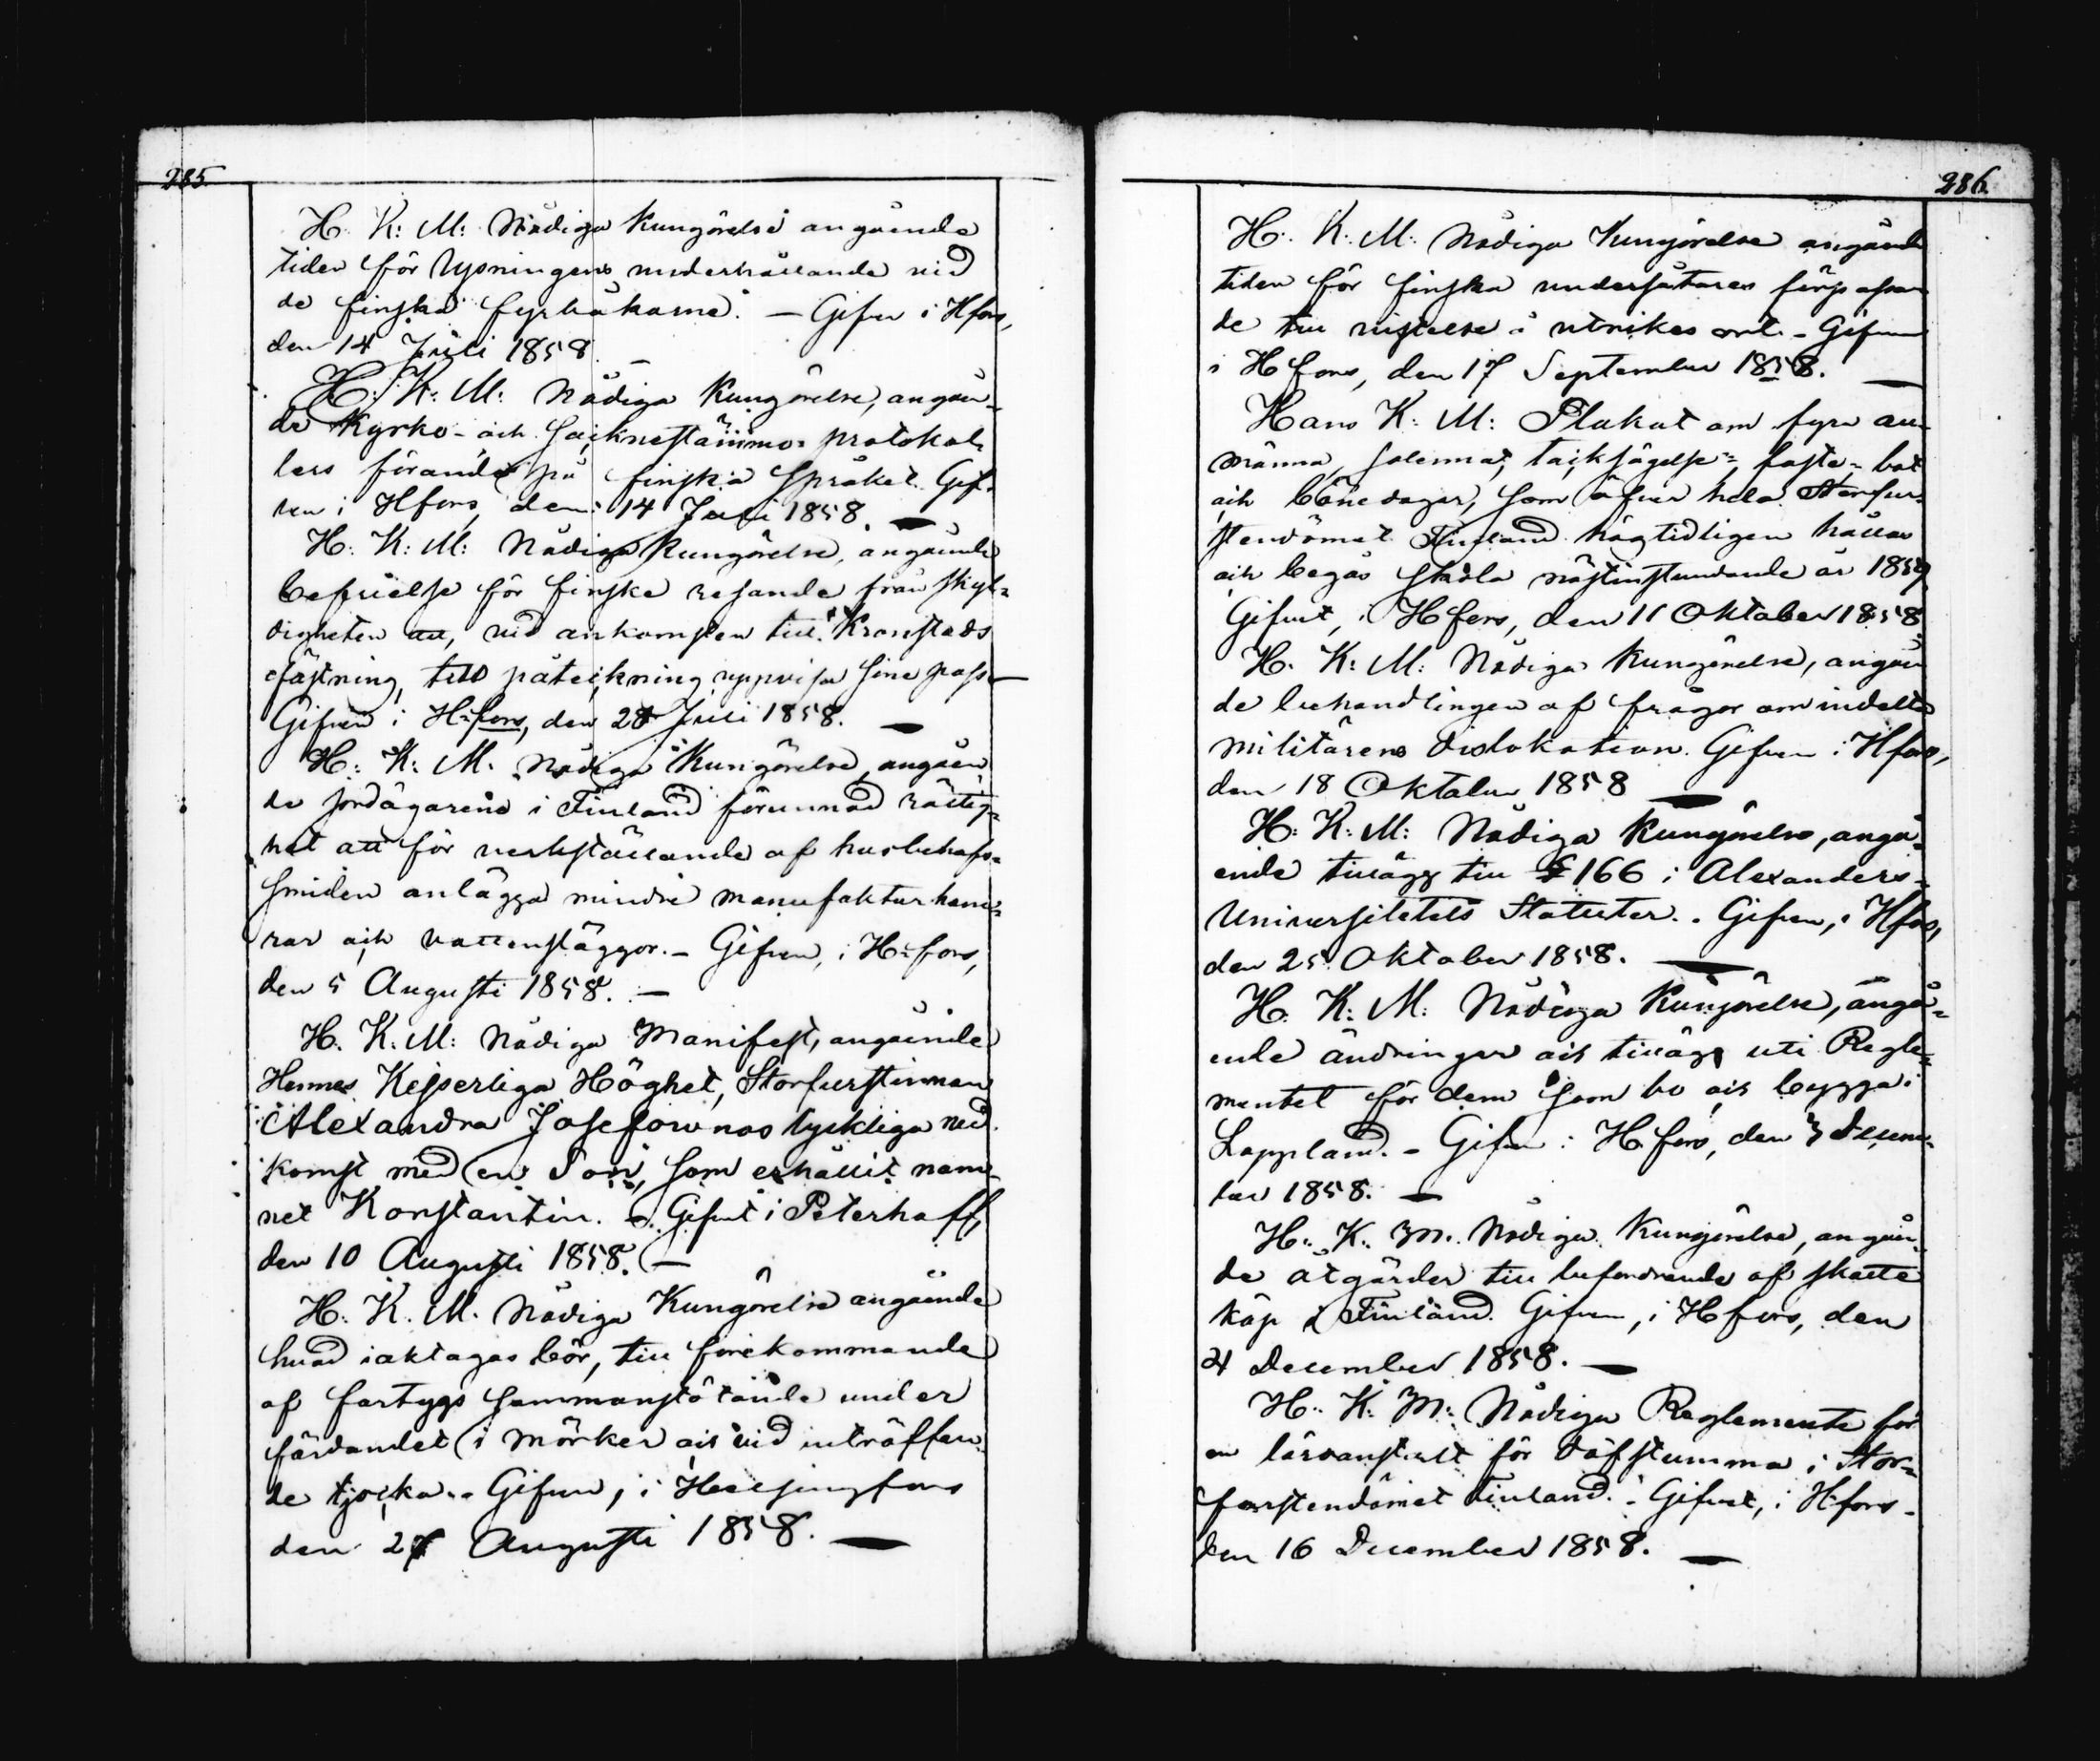 285.
H. K: M: Nådiga Kungörelse angående
tiden för lysningens underhållande vid
de finska fyrbåkarne. — Gifven i Hfors,
den 14 Juli 1858. —
H: K: M: Nådiga Kungörelse, angåen-
de Kyrko- och Socknestämmo- protokol-
lers förande på finska Språket. Gif-
ven i Hfors, den 14 Juli 1858. —
H: K: M: Nådiga Kungörelse, angående
befrielse för finske resande från skyl-
digheten att, vid ankomsten till Kronstads
fästning, till påteckning uppvisa sine pass—
Gifven i H-fors, den 28 Juli 1858. —
H: K: M: Nådiga Kungörelse, angåen
de jordägarene i Finland förunnad rättig-
het att för verkställande af husbehofs-
smiden anlägga mindre manufakturham-
rar och vattensläggor. – Gifven, i H-fors,
den 5 Augusti 1858. —
H. K: M: Nådiga Manifest, angående
Hennes Kejserliga Höghet, Storfurstinnan
Alexandra Josefownas lyckliga ned-
komst med en Son, som erhållit nam-
net Konstantin. – Gifvet i Peterhoff,
den 10 Augusti 1858. —
H. K. M. Nådiga Kungörelse angående
hvad iakttagas bör, till förekommande
af fartygs sammanstötande under
färdandet i mörker och vid inträffan-
de tjocka. – Gifven, i Helsingfors
den 27 Augusti 1858. —
286.
H: K: M: Nådiga Kungörelse angående
tiden för finska undersåtares förpassan
de till vistelse å utrikes ort. – Gifven
i Hfors, den 17 September 1858. —
Hans K: M: Plakat om fyra all-
männa, solenna, tacksägelse-, faste-, bot
och bönedagar, som öfver hela Storfur-
stendömet Finland högtidligen hållas
och begås skola nästinstundande år 1859
Gifvet, i Hfors, den 11 Oktober 1858
H. K: M: Nådiga Kungörelse, angåen
de behandlingen af frågor om indelta
militärens dislokation. Gifven i Hfors,
den 18 Oktober 1858 —
H: K: M: Nådiga Kungörelse, angå-
ende tillägg till § 166 i Alexanders-
Universitetets Statuter. – Gifven, i Hfors,
den 25 Oktober 1858. —
H. K: M: Nådiga Kungörelse, angå-
ende ändringar och tillägg uti Regle-
mentet för dem som bo och bygga i
Lappland. – Gifven i Hfors, den 3 Decem-
ber 1858. —
H: K. M. Nådiga Kungörelse, angåen-
de åtgärder till befordrande af skatte
köp i Finland. Gifven, i Hfors, den
4 December 1858. —
H: K: M: Nådiga Reglemente för
en läroanstalt för döfstumma i Stor-
furstendömet Finland. – Gifvet, i Hfors –
den 16 December 1858. —